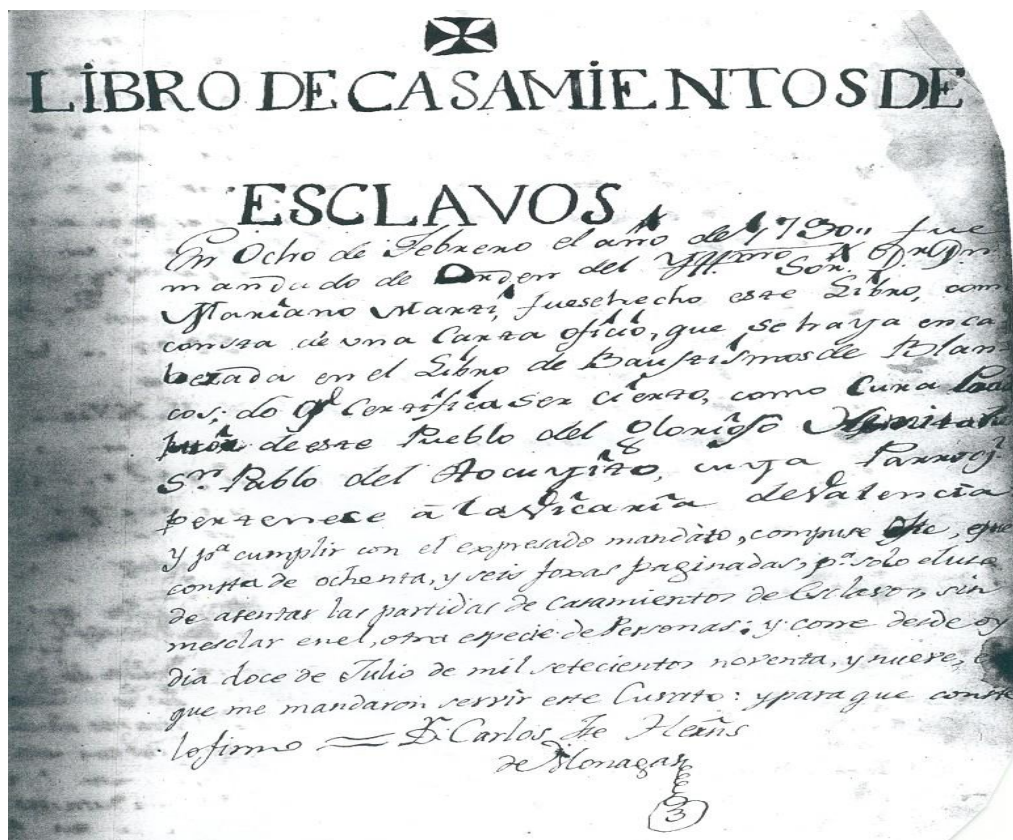 LIBRO DE CASAMIENTOS DE
ESCLAVOS
En Ocho de Febrero el año de 1790,, fue
mandado de Orden del Yllmo Sor. Dr Dn
Mariano Marti, fuese hecho este Libro, como
consta de una Carta oficio, que se haya enca
bezada en el Libro de Bautismos de Blan
cos; do qe Certifica ser cierto, como Cura
de este Pueblo del Glorioso
Sn. Pablo del Tocuyito, cuya Parroq
pertenese â la Vicaria de Valencia
y pa. cumplir con el expresado mandato, compuse este, que
consta de ochenta, y seis foxas paginadas, pa. solo el uso
de asentar las partidas de Casamientos de Esclavos, sin
mesclar en el, otra especie de Personas; y corre desde oy
dia doce de Julio de mil setecientos noventa, y nueve,
que me mandaron servir este Curato: y para que conste
lo firmo = Dr. Carlos
de Monagas
3